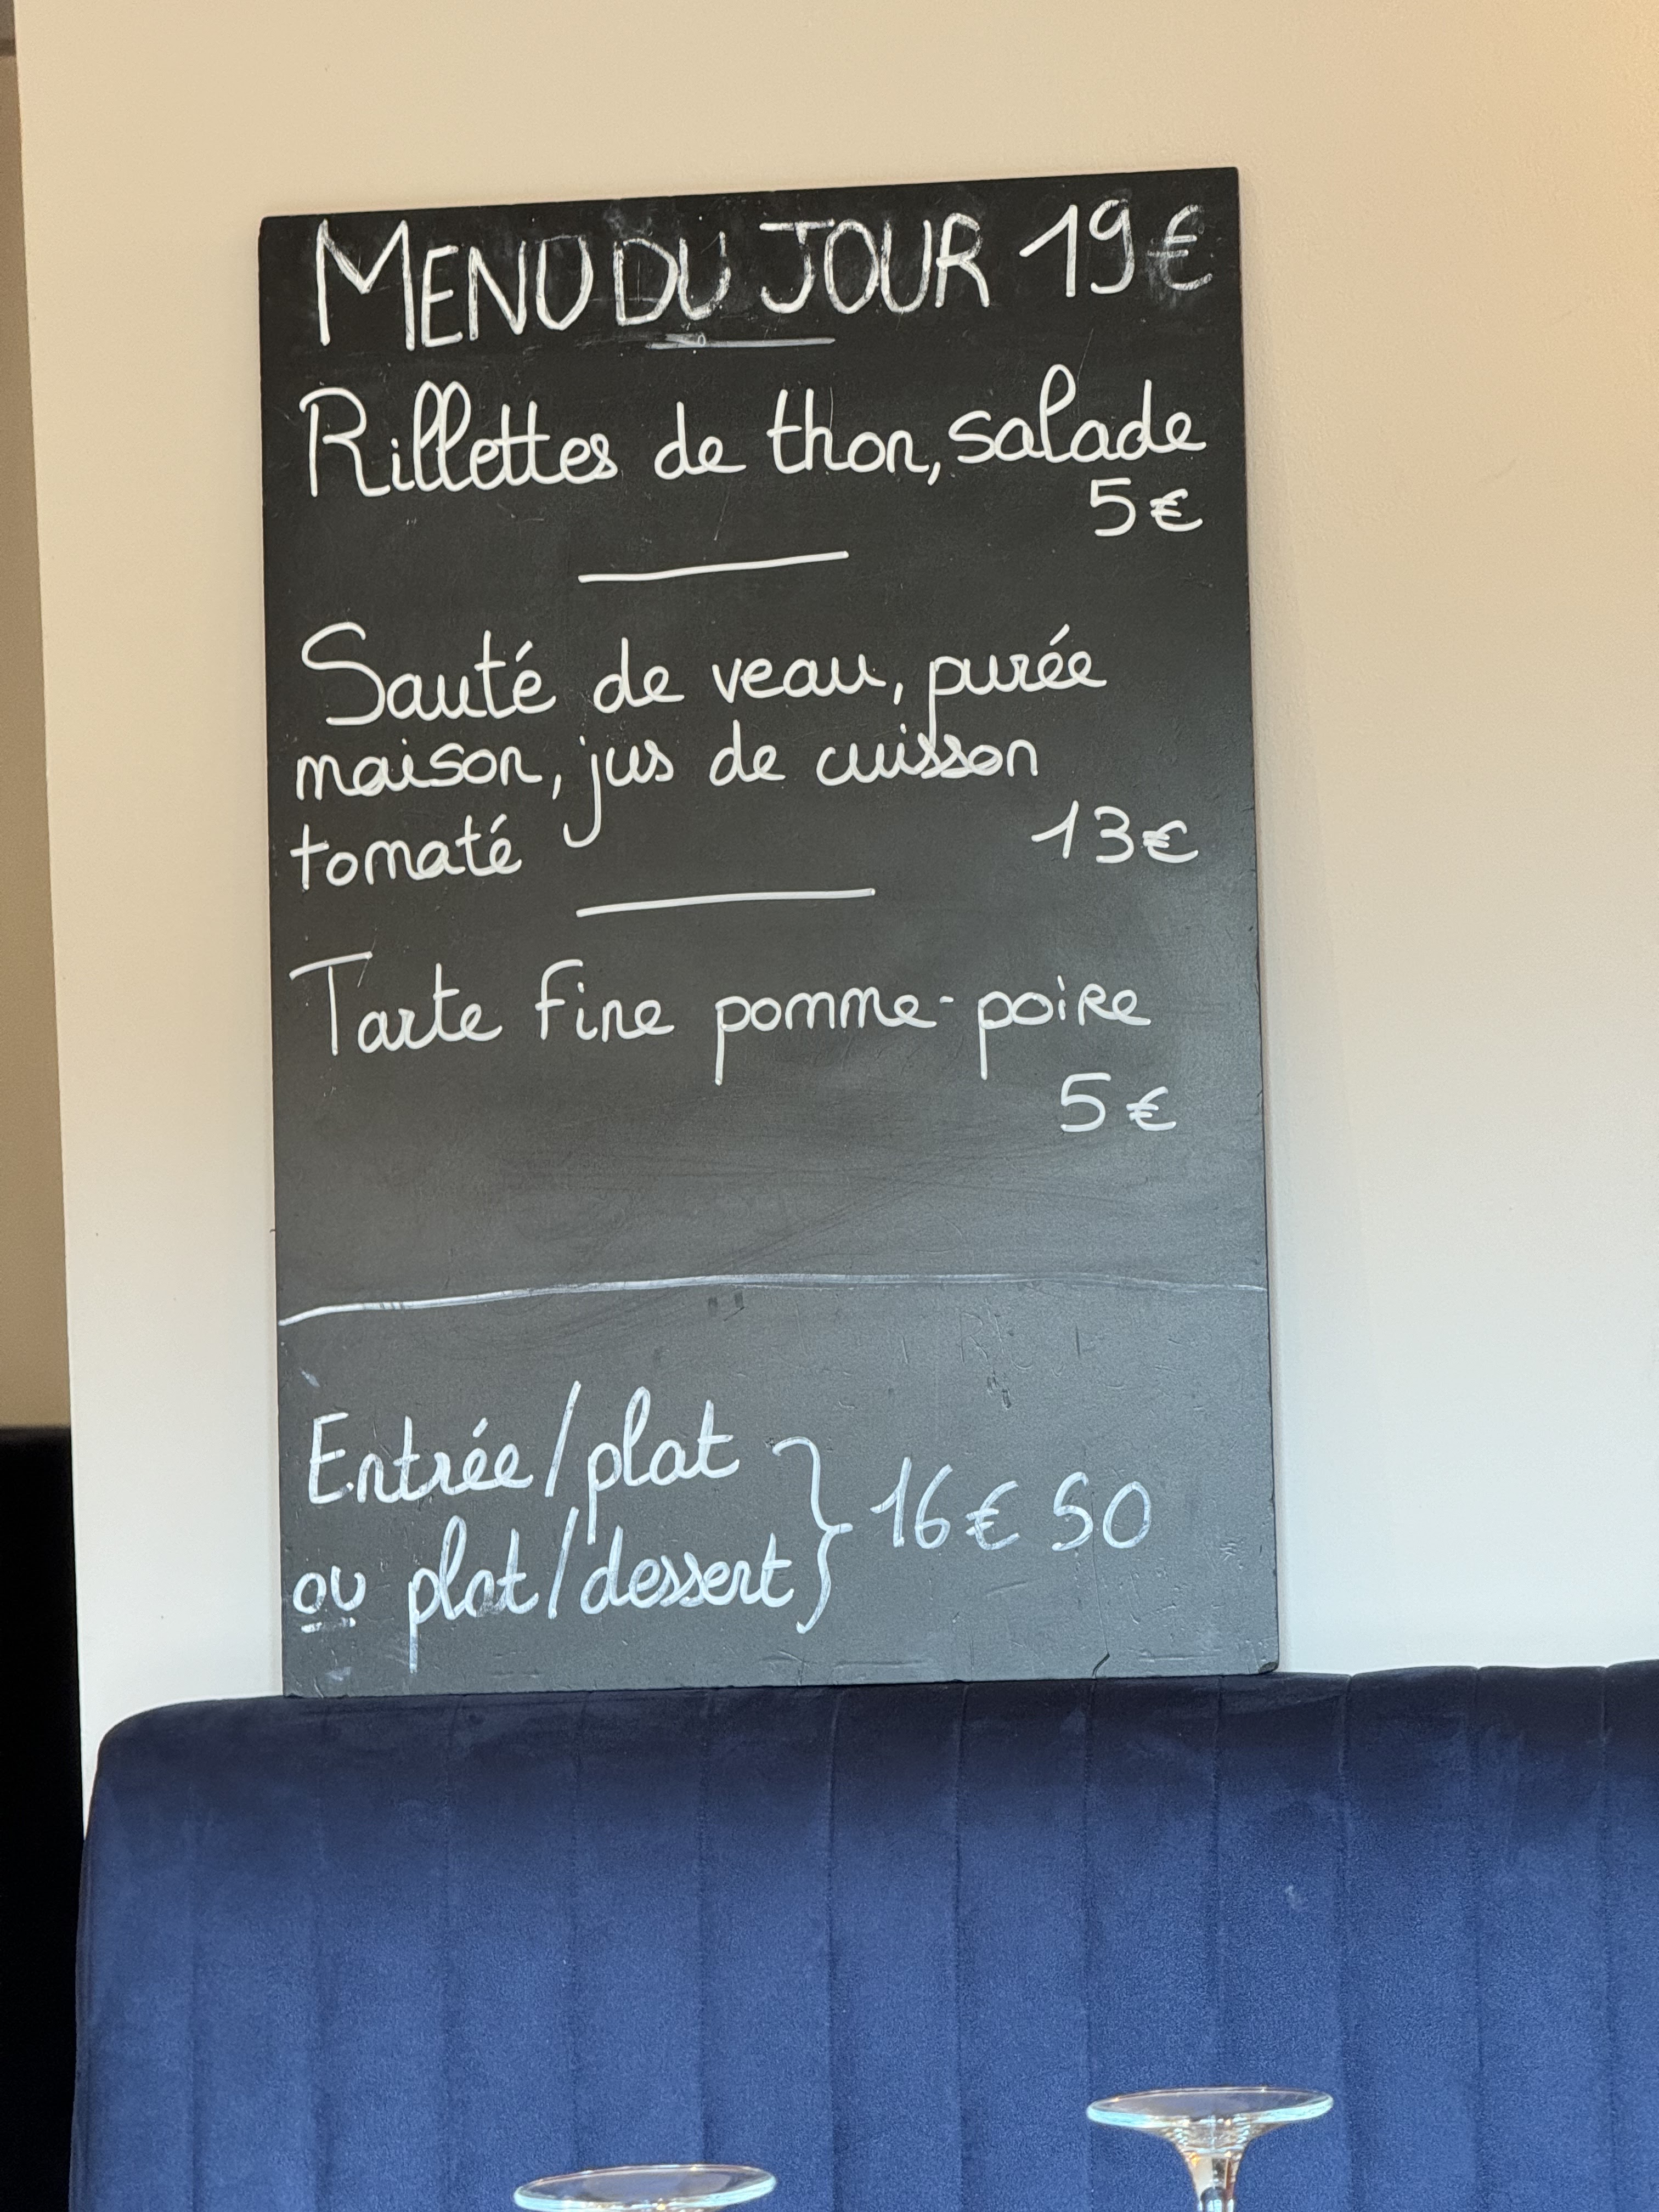 MENU DU JOUR 19€
Rillettes de thon, salade
5€
Sauté de veau, purée
maison, jus de cuisson
tomaté 13€
Tarte fine pomme-poire
5€
Entrée/plat
ou plat/dessert } 16€ 50